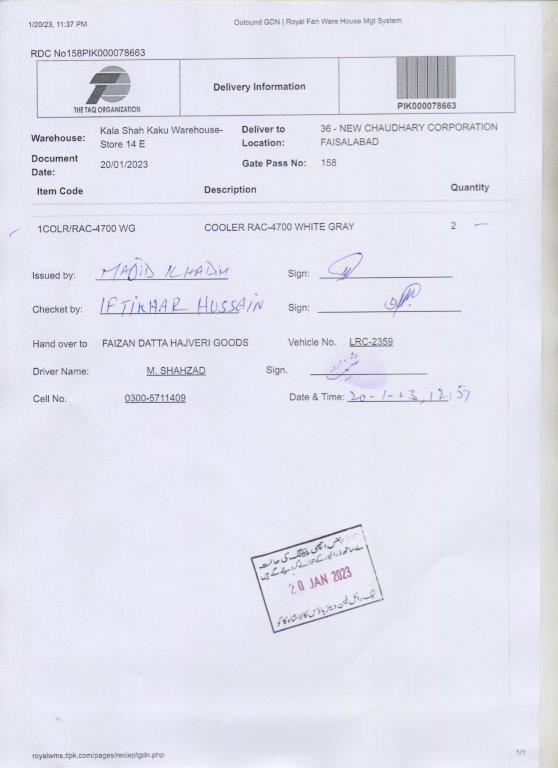 1/20/23, 11:37 PM Outound GDN | Royal Fan Ware House Mgt System
RDC No158PIK000078663
THE TAQ ORGANIZATION
Delivery Information
PIK000078663
Warehouse: Kala Shah Kaku Warehouse-Store 14 E Deliver to Location: 36 - NEW CHAUDHARY CORPORATION FAISALABAD
Document Date: 20/01/2023 Gate Pass No: 158
Item Code Description Quantity
1COLR/RAC-4700 WG COOLER RAC-4700 WHITE GRAY 2
Issued by: MAJID KHADIM Sign:
Checket by: IFTIKHAR HUSSAIN Sign:
Hand over to FAIZAN DATTA HAJVERI GOODS Vehicle No. LRC-2359
Driver Name: M. SHAHZAD Sign. شہزاد
Cell No. 0300-5711409 Date & Time: 20-1-23, 12:57
اچھی پیکنگ کی حالت
20 JAN 2023
royalwms.tlpk.com/pages/recieptgdn.php 1/1